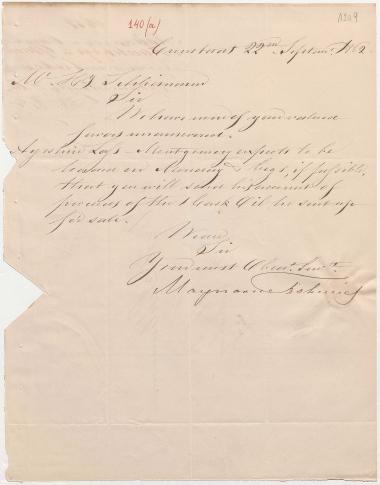 140(a)
1209
22nd Septem. 1862
Mr Hy Schliemann
Sir
We have none of your valued
favors unanswered.
Ayrshire Lass - Montgomery expects to be
on Monday & begs, if possible,
that you will send him account of
proceeds of the 1 Cask Oil he sent up
for sale.
We are
Sir
Your most Obedt. Servts.
Maynard